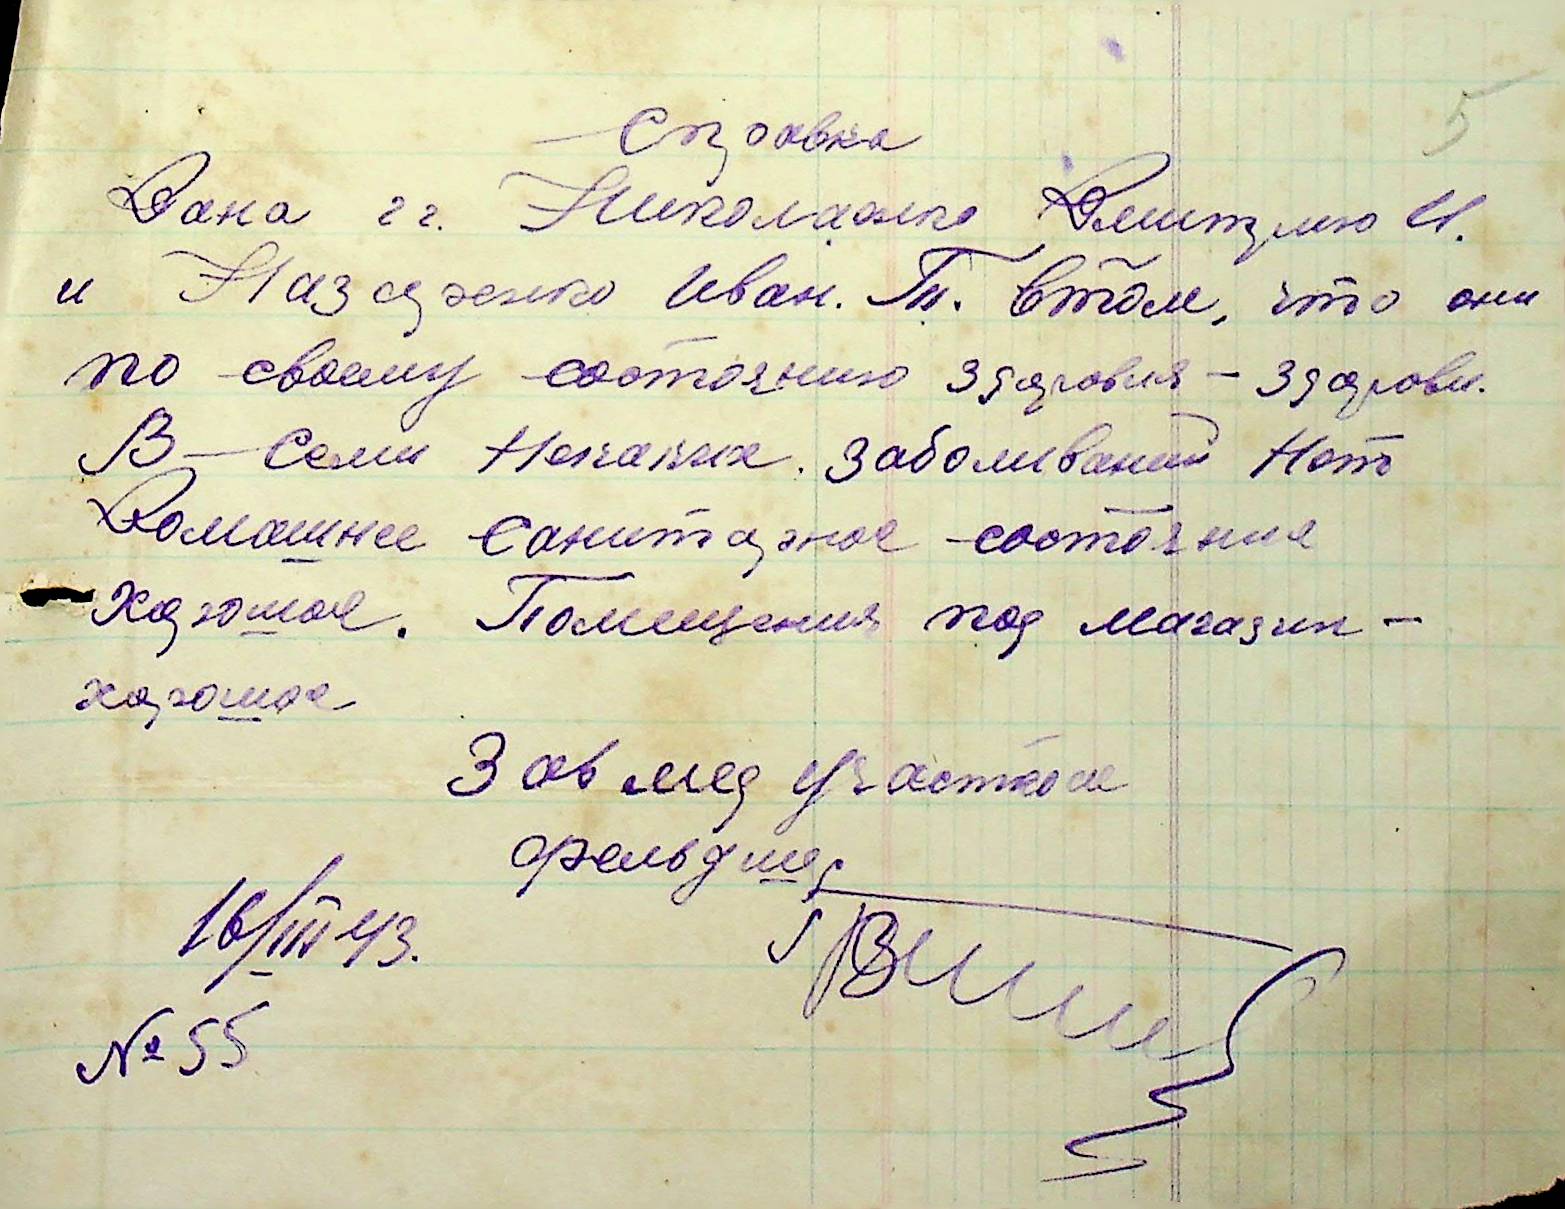 5
Справка
Дана гг. Николаенко Дмитрию И.
и Назаренко Иван. Т. Втом, что они
по своему состоянию здоровия – здорови.
В Семи Некаких. Заболиваний Нет
Домашнее Санитарное состояние
Хорошое. Помещения под магазин –
хорошое
Зав мед участком
фельдшер
16/III 43.
№ 55